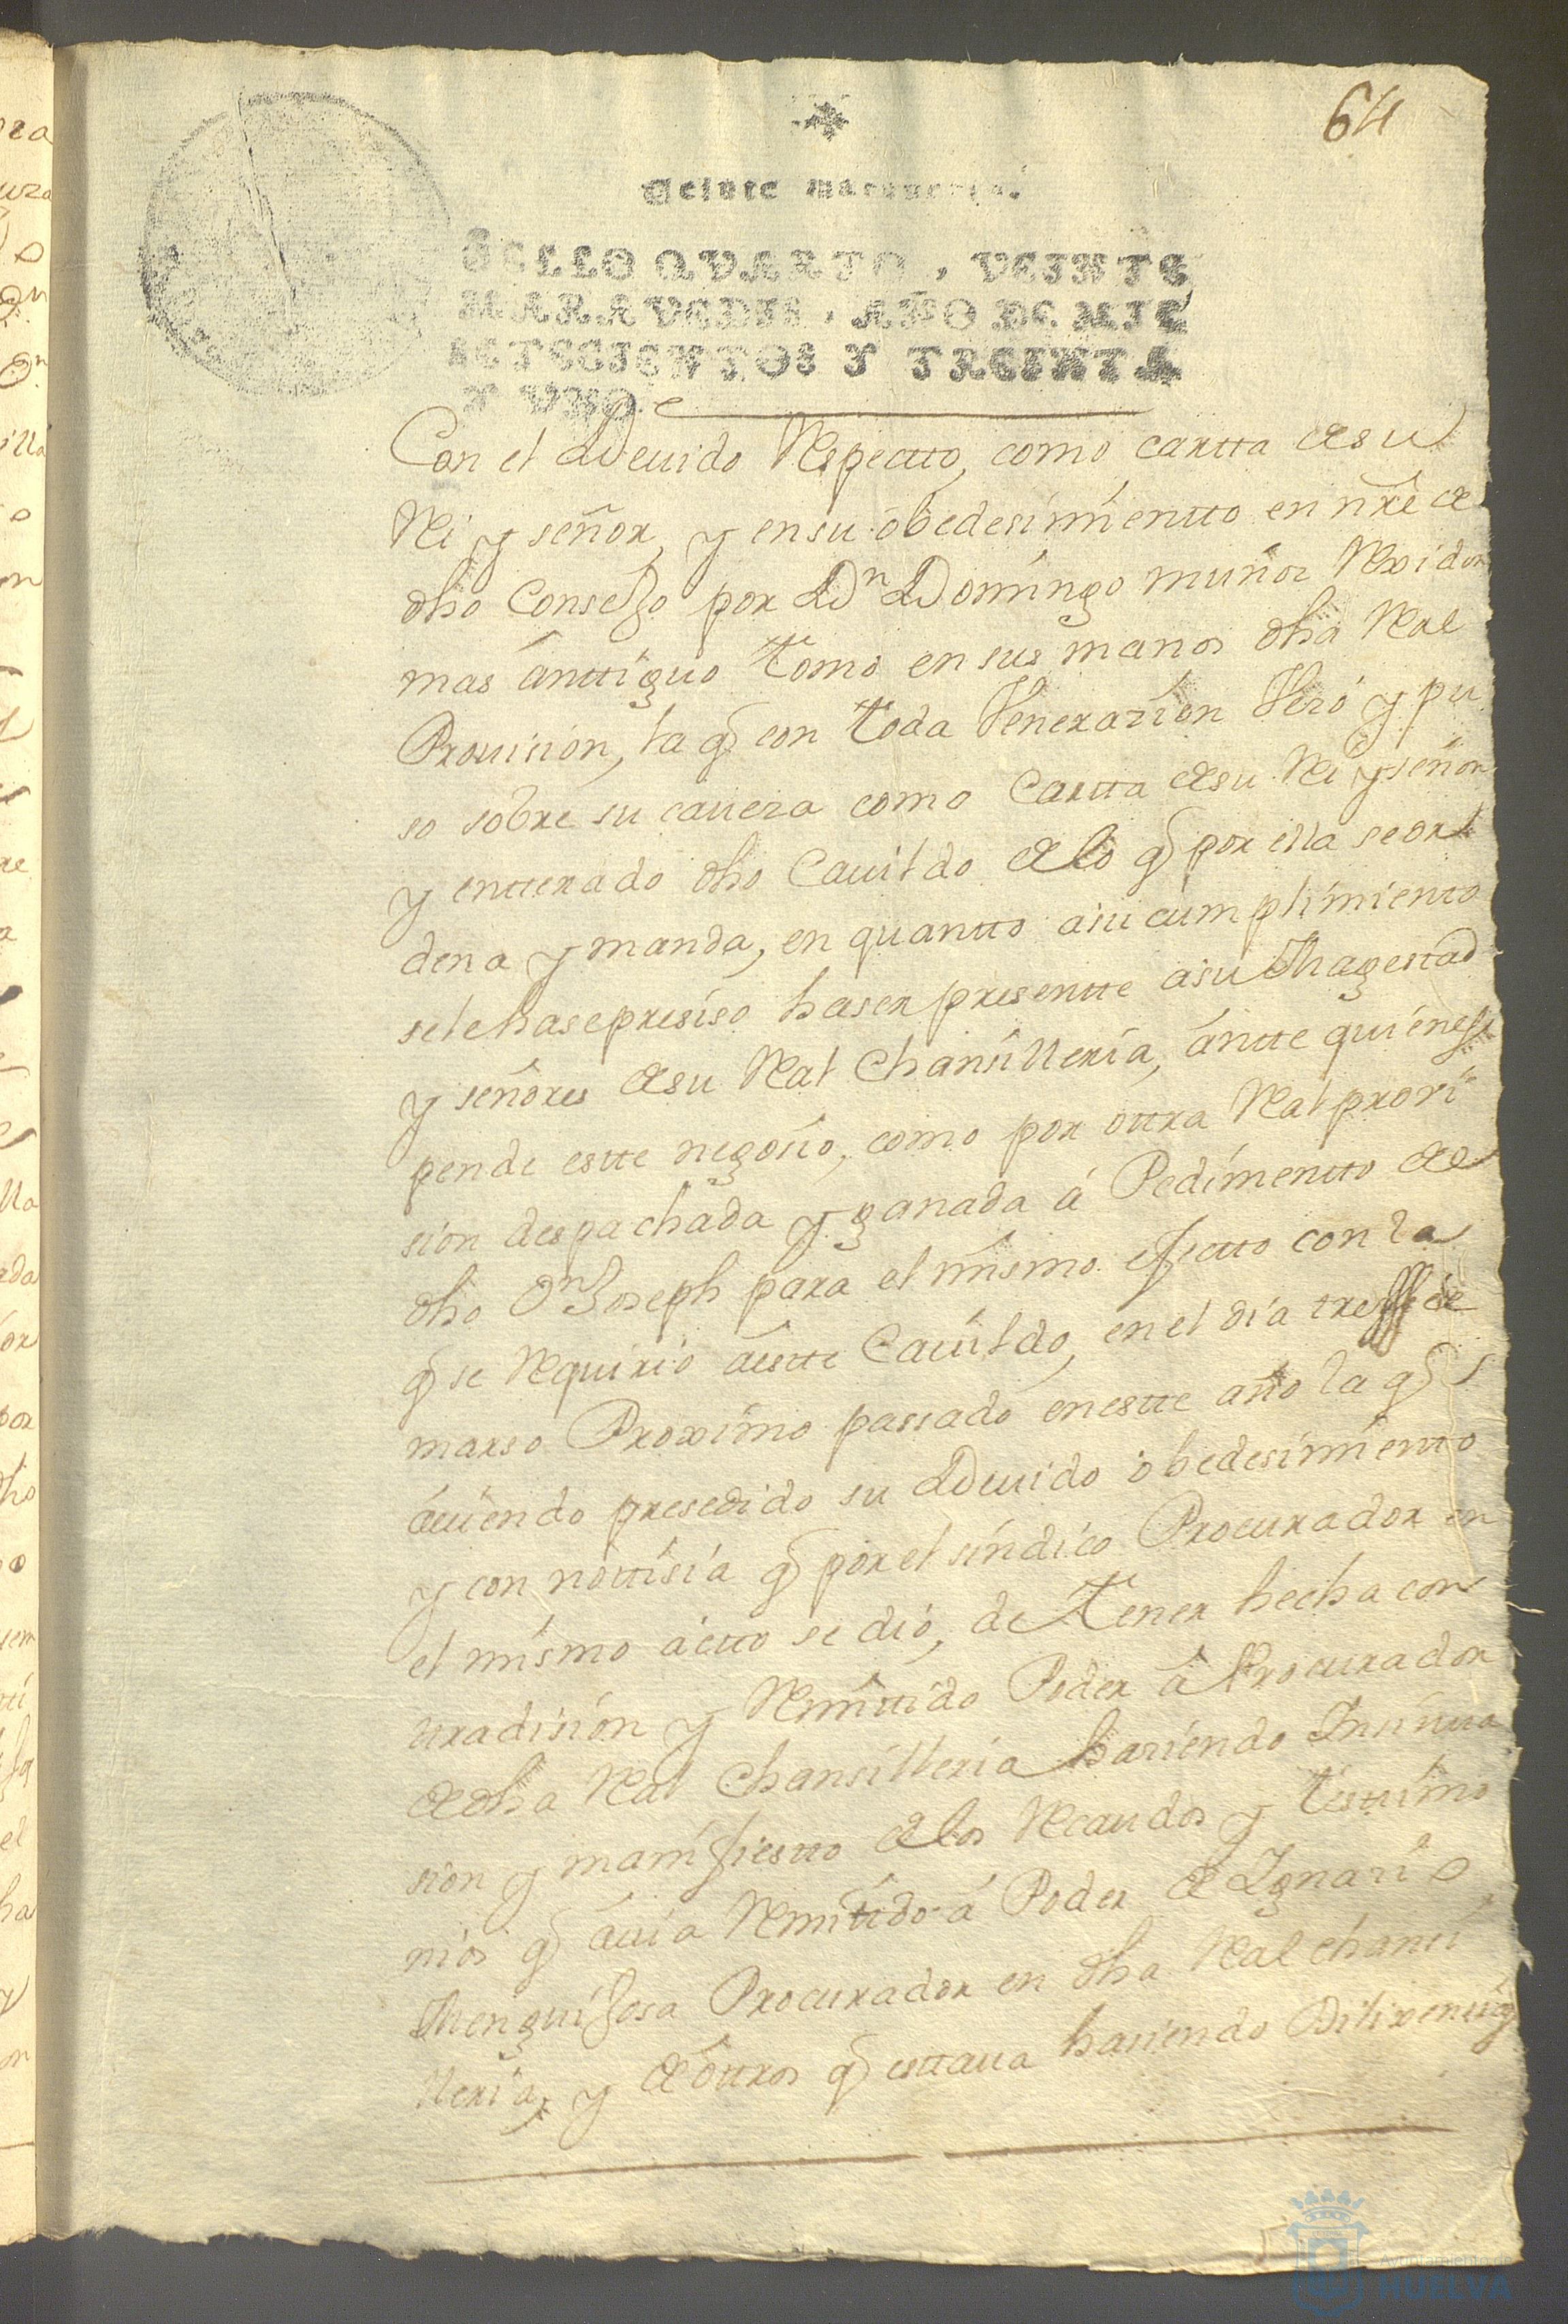 64
Veinte maravedis.
SELLO QVARTO, VEINTE
MARAVEDIS, AÑO DE MIL
SETECIENTOS Y TREINTA
Y VNO.
Con el Deuido Respectto, como cartta de su
Rei y señor, y en su obedesimientto en nr̃e de
dho Consejo por Dn Domingo muñoz Rexidor
mas anttiguo tomo en sus manos dha Real
Prouision, la q̃ con toda Venerazion Vezó y pu
so sobre su caueza como Cartta de su Rei y señor
y entterado dho Cauildo de lo q̃ por ella se or
dena y manda, en quantto a su cumplimiento
se le hase presiso haser presentte a su Magestad
y señores de su Real Chansilleria, antte quienes
pende estte negosio, como por ottra Real provi
sion despachada y ganada á Pedimentto de
dho Dn Joseph para el mismo efectto con la
q̃ se Requirio a estte Cauildo, en el dia trese de
marso Proximo passado en estte año la q̃
auiendo presedido su Deuido obedesimiento
y con nottisia q̃ por el sindico Procurador en
el mismo actto se dió, de tener hecha con
tradision y Remittido Poder á Procurador
de dha Real Chansilleria haziendo Insinua
sion y manifiestto de los Recaudos y testtimo
nios q̃ auia Remitido á Poder de Ignazio
Mengujosa Procurador en dha Real chansi
lleria, y de ottros q̃ esttaua hasiendo Dilixensia
Ayuntamiento de
HUELVA